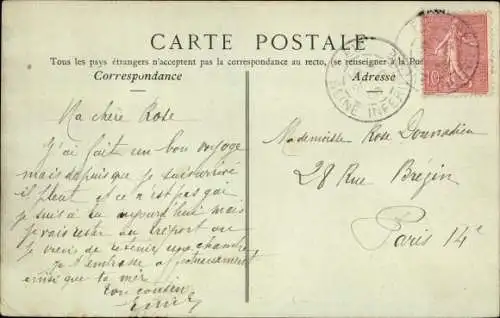 CARTE POSTALE
Tous les pays étrangers n'acceptent pas la correspondance au recto, (se renseigner à la Pos
Correspondance
Adresse
SEINE INFERE
10
Ma chère Rose
J'ai fait un bon voyage
mais depuis que je suis arrivé
il pleut et ce n'est pas gai
je suis à Eu aujourd'hui mais
je vais rester au Tréport où
je viens de retenir une chambre
je t'embrasse affectueusement
ainsi que ta mère
ton cousin
Mademoiselle Rose Donnadieu
28 Rue Brézin
Paris 14e